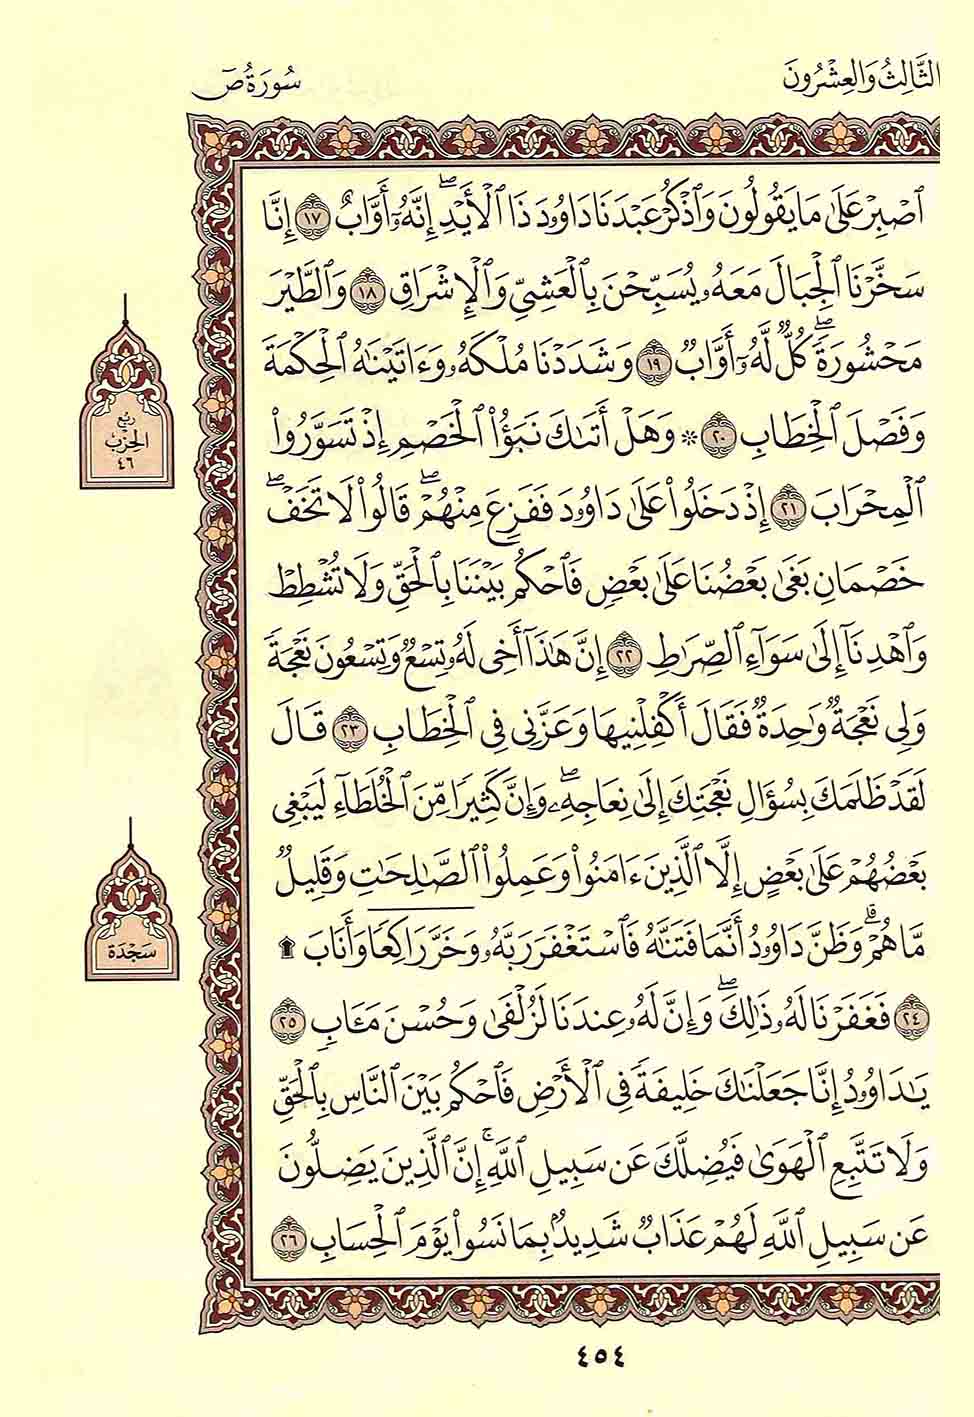 الثَّالِثُ وَالعِشْرُونَ
سُورَةُ صٓ
ٱصۡبِرۡ عَلَىٰ مَا يَقُولُونَ وَٱذۡكُرۡ عَبۡدَنَا دَاوُۥدَ ذَا ٱلۡأَيۡدِۖ إِنَّهُۥٓ أَوَّابٌ ١٧ إِنَّا
سَخَّرۡنَا ٱلۡجِبَالَ مَعَهُۥ يُسَبِّحۡنَ بِٱلۡعَشِيِّ وَٱلۡإِشۡرَاقِ ١٨ وَٱلطَّيۡرَ
مَحۡشُورَةٗۖ كُلّٞ لَّهُۥٓ أَوَّابٞ ١٩ وَشَدَدۡنَا مُلۡكَهُۥ وَءَاتَيۡنَٰهُ ٱلۡحِكۡمَةَ
وَفَصۡلَ ٱلۡخِطَابِ ٢٠ ۞ وَهَلۡ أَتَىٰكَ نَبَؤُاْ ٱلۡخَصۡمِ إِذۡ تَسَوَّرُواْ
ٱلۡمِحۡرَابَ ٢١ إِذۡ دَخَلُواْ عَلَىٰ دَاوُۥدَ فَفَزِعَ مِنۡهُمۡۖ قَالُواْ لَا تَخَفۡۖ
خَصۡمَانِ بَغَىٰ بَعۡضُنَا عَلَىٰ بَعۡضٖ فَٱحۡكُم بَيۡنَنَا بِٱلۡحَقِّ وَلَا تُشۡطِطۡ
وَٱهۡدِنَآ إِلَىٰ سَوَآءِ ٱلصِّرَٰطِ ٢٢ إِنَّ هَٰذَآ أَخِي لَهُۥ تِسۡعٞ وَتِسۡعُونَ نَعۡجَةٗ
وَلِيَ نَعۡجَةٞ وَٰحِدَةٞ فَقَالَ أَكۡفِلۡنِيهَا وَعَزَّنِي فِي ٱلۡخِطَابِ ٢٣ قَالَ
لَقَدۡ ظَلَمَكَ بِسُؤَالِ نَعۡجَتِكَ إِلَىٰ نِعَاجِهِۦۖ وَإِنَّ كَثِيرٗا مِّنَ ٱلۡخُلَطَآءِ لَيَبۡغِي
بَعۡضُهُمۡ عَلَىٰ بَعۡضٍ إِلَّا ٱلَّذِينَ ءَامَنُواْ وَعَمِلُواْ ٱلصَّٰلِحَٰتِ وَقَلِيلٞ
مَّا هُمۡۗ وَظَنَّ دَاوُۥدُ أَنَّمَا فَتَنَّٰهُ فَٱسۡتَغۡفَرَ رَبَّهُۥ وَخَرَّۤ رَاكِعٗاۤ وَأَنَابَ ۩
٢٤ فَغَفَرۡنَا لَهُۥ ذَٰلِكَۖ وَإِنَّ لَهُۥ عِندَنَا لَزُلۡفَىٰ وَحُسۡنَ مَـَٔابٖ ٢٥
يَٰدَاوُۥدُ إِنَّا جَعَلۡنَٰكَ خَلِيفَةٗ فِي ٱلۡأَرۡضِ فَٱحۡكُم بَيۡنَ ٱلنَّاسِ بِٱلۡحَقِّ
وَلَا تَتَّبِعِ ٱلۡهَوَىٰ فَيُضِلَّكَ عَن سَبِيلِ ٱللَّهِۚ إِنَّ ٱلَّذِينَ يَضِلُّونَ
عَن سَبِيلِ ٱللَّهِ لَهُمۡ عَذَابٞ شَدِيدُۢ بِمَا نَسُواْ يَوۡمَ ٱلۡحِسَابِ ٢٦
رُبْع
الحِزْب
٤٦
سَجْدَة
٤٥٤